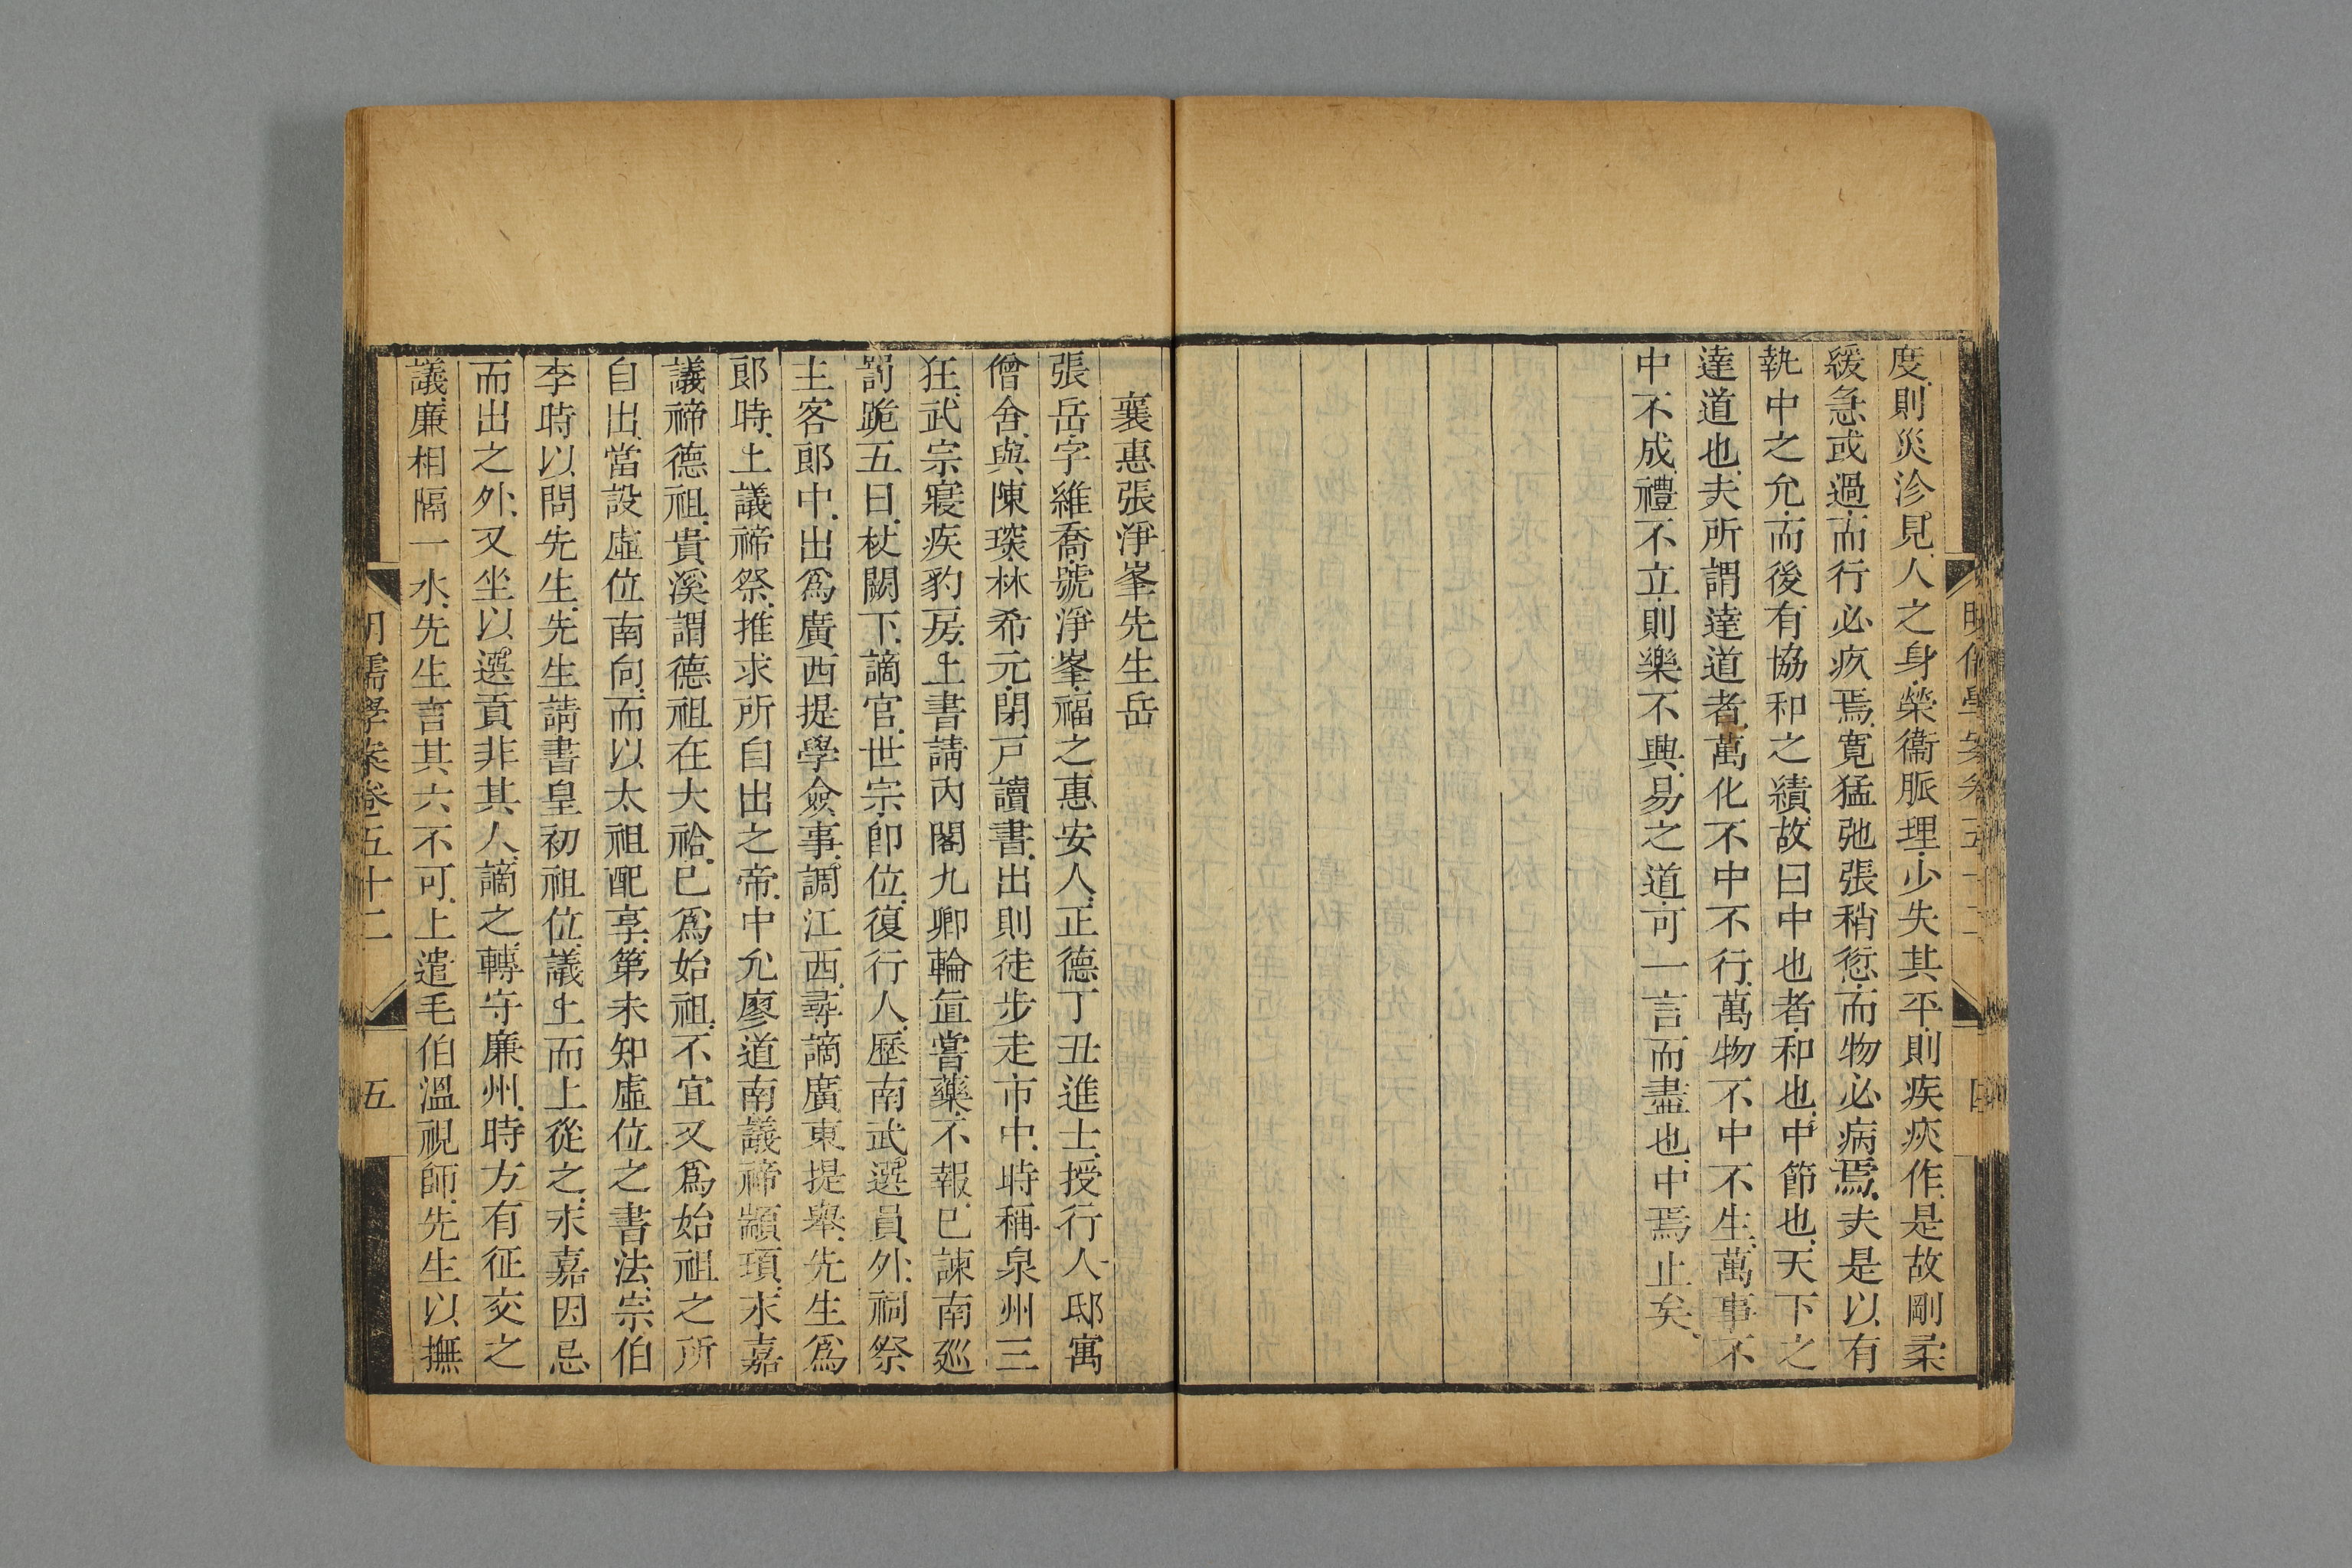 度則災沴見人之身榮衞脈理少失其平則疾疢作是故剛柔
緩急或過而行必疚焉寬猛弛張稍愆而物必病焉夫是以有
執中之允而後有協和之績故曰中也者和也中節也天下之
達道也夫所謂達道者萬化不中不行萬物不中不生萬事不
中不成禮不立則樂不興易之道可一言而盡也中焉止矣
襄惠張淨峯先生岳
張岳字維喬號淨峯福之惠安人正德丁丑進士授行人邸寓
僧舍與陳琛林希元閉戸讀書出則徒步走市中時稱泉州三
狂武宗寢疾豹房上書請內閣九卿輪直嘗藥不報已諫南廵
罰跪五日杖闕下謫官世宗卽位復行人歷南武選員外祠祭
主客郞中出爲廣西提學僉事調江西尋謫廣東提舉先生爲
郞時上議禘祭推求所自出之帝中允廖道南議禘顓頊永嘉
議禘德祖貴溪謂德祖在大祫已爲始祖不宜又爲始祖之所
自出當設虛位南向而以太祖配享第未知虛位之書法宗伯
李時以問先生先生請書皇初祖位議上而上從之永嘉因忌
而出之外又坐以選貢非其人謫之轉守廉州時方有征交之
議廉相隔一水先生言其六不可上遣毛伯溫視師先生以撫
明儒學案卷五十二
五